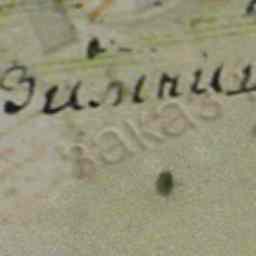 Зимниц
заказ